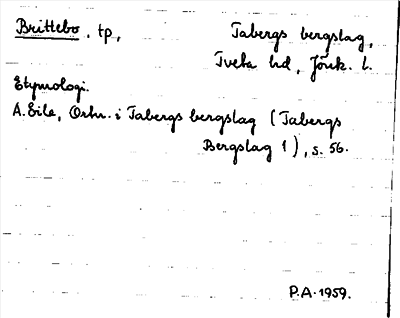 Brittebo, tp, Tabergs bergslag,
Tveta hd, Jönk. l.
Etymologi.
A. Eile, Ortn. i Tabergs bergslag (Tabergs
Bergslag 1), s. 56.
P.A. 1959.